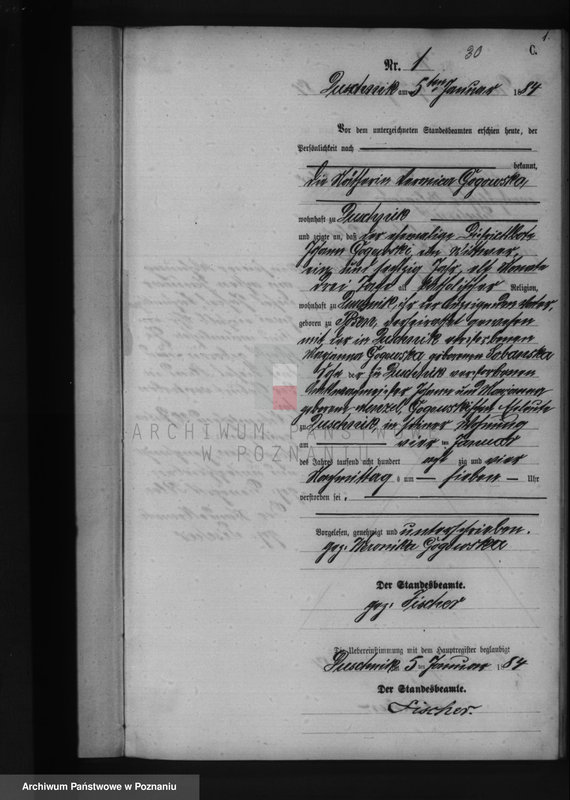 1.
30
C.
Nr. 1
Duschnik am 5ten Januar 1884
Vor dem unterzeichneten Standesbeamten erschien heute, der
Persönlichkeit nach
bekannt,
die Veronica Gogowska,
wohnhaft zu Duschnik
und zeigte an, daß der ehemalige Districtsbote
Johann Gogowski, ein Wittwer,
ein und sechzig Jahr, elf Monate
drei Tage alt, katholischer Religion,
wohnhaft zu Duschnik, ihr der Anzeigenden Vater,
geboren zu Posen, verheirathet gewesen
mit der in Duschnik verstorbenen
Marianna Gogowska geborenen Sobanska
Sohn der zu Duschnik verstorbenen
Johann und Marianna
geborene Menzel, Gogowskischen Eheleute
zu Duschnik, in seiner Wohnung
am vier ten Januar
des Jahres tausend acht hundert acht zig und vier
Nachmittag s um sieben Uhr
verstorben sei.
Vorgelesen, genehmigt und unterschrieben.
gez: Veronika Gogowska
Der Standesbeamte.
gez: Fischer
Die Uebereinstimmung mit dem Hauptregister beglaubigt
Duschnik am 5 ten Januar 1884
Der Standesbeamte.
Fischer.
ARCHIWUM PAŃSTWOWE
W POZNANIU
Archiwum Państwowe w Poznaniu